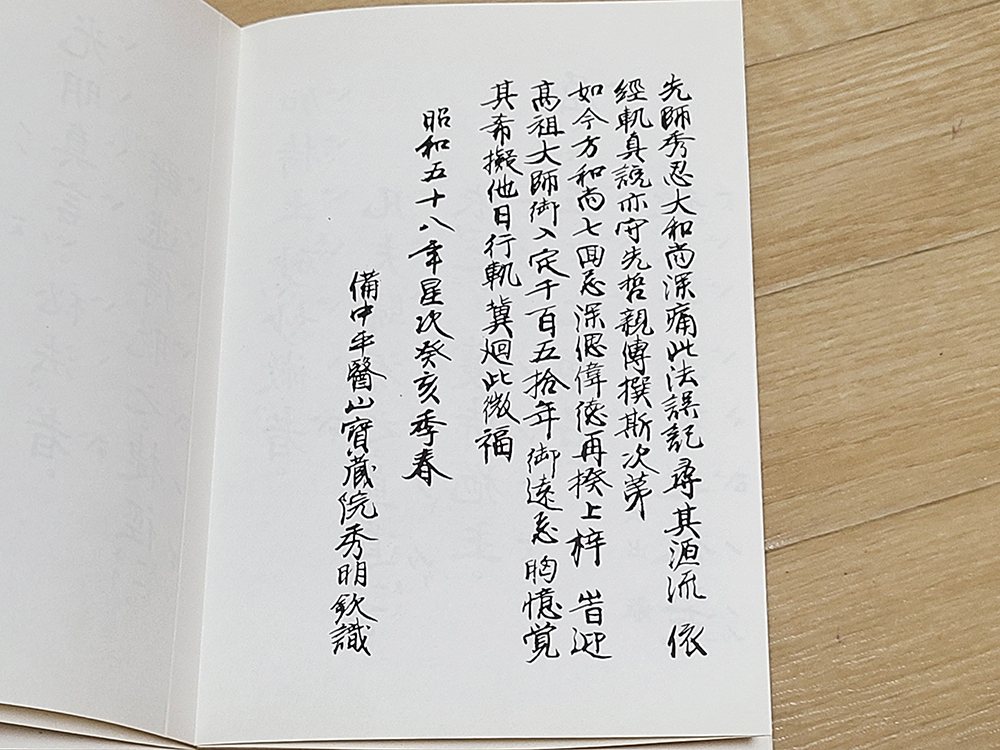 先師秀忍大和尚深痛此法誤記 尋其源流 依
經軌真說亦守先哲親傳撰斯次第
如今方和尚七回忌深偲偉德再揆上梓 旹迎
高祖大師御入定千百五拾年 御遠忌 胸憶覚
其希擬他日行軌冀廻此微福
昭和五十八年星次癸亥季春
備中平醫山寶蔵院秀明欽識